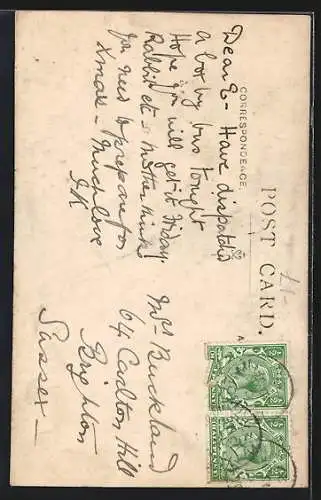 POST CARD.
CORRESPONDENCE.
Dear E- Have dispatched
a box by bus tonight
Hope you will get it Friday.
Rabbit etc & Mother thinks
you need to prepare for
Xmas - Much love
Mrs Buckland
64 Carlton Hill
Brighton
Sussex -